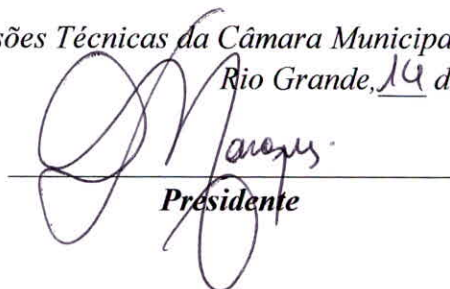 sões Técnicas da Câmara Municipa
Rio Grande, 14 d
Presidente